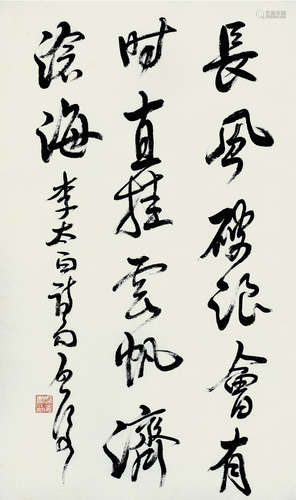 長風破浪會有
时直挂雲帆濟
滄海
李太白詩句